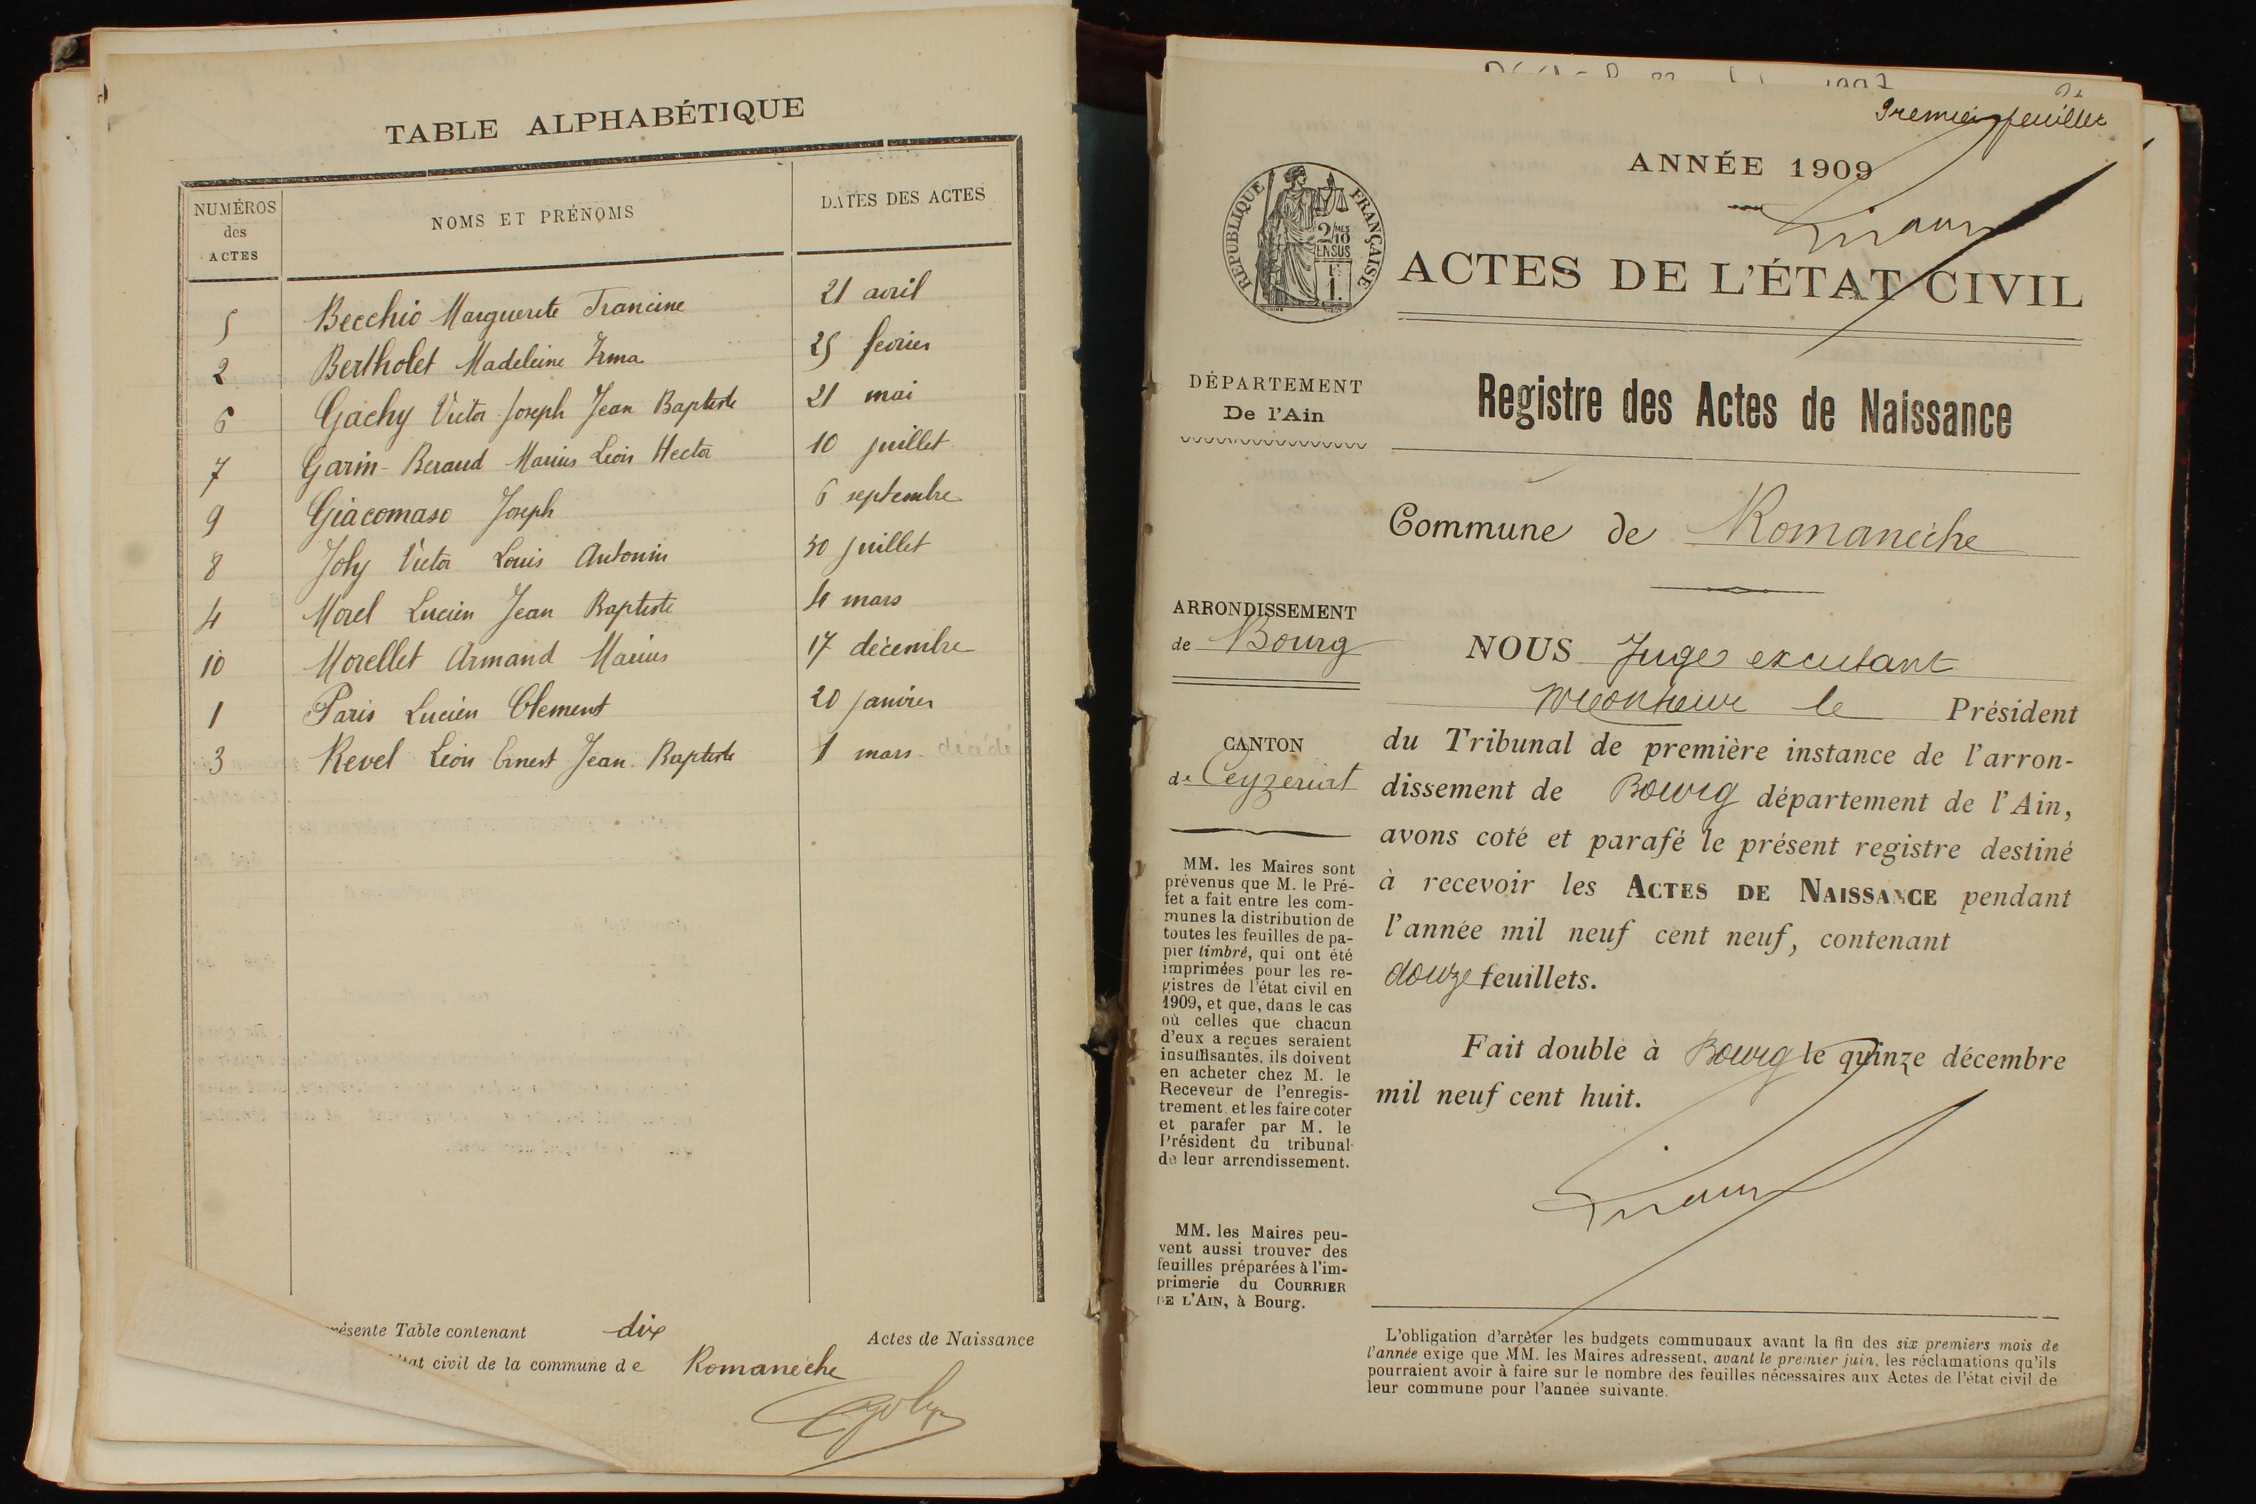 TABLE ALPHABÉTIQUE
NUMÉROS des ACTES
NOMS ET PRÉNOMS
DATES DES ACTES
5 Becchio Marguerite Francine 21 avril
2 Bertholet Madeleine Irma 25 fevrier
6 Gachy Victor Joseph Jean Baptiste 21 mai
7 Garin-Beraud Marius Léon Hector 10 juillet
9 Giacomaso Joseph 6 septembre
8 Joly Victor Louis Antonin 30 juillet
4 Morel Lucien Jean Baptiste 4 mars
10 Morellet Armand Marius 17 décembre
1 Paris Lucien Clement 20 janvier
3 Revel Léon Ernest Jean Baptiste 1 mars décédé
résente Table contenant dix Actes de Naissance
tat civil de la commune de Romanèche
Joly
Premier feuillet
ANNÉE 1909
RÉPUBLIQUE FRANÇAISE
2/10 MES
EN SUS
1F
ACTES DE L'ÉTAT CIVIL
DÉPARTEMENT
De l'Ain
Registre des Actes de Naissance
Commune de Romanèche
ARRONDISSEMENT
de Bourg
NOUS Juge excutant
Monsieur le Président
du Tribunal de première instance de l'arron-
dissement de Bourg département de l'Ain,
avons coté et parafé le présent registre destiné
à recevoir les ACTES DE NAISSANCE pendant
l'année mil neuf cent neuf, contenant
douze feuillets.
Fait double à Bourg le quinze décembre
mil neuf cent huit.
CANTON
de Ceyzeriat
MM. les Maires sont
prévenus que M. le Pré-
fet a fait entre les com-
munes la distribution de
toutes les feuilles de pa-
pier timbré, qui ont été
imprimées pour les re-
gistres de l'état civil en
1909, et que, dans le cas
où celles que chacun
d'eux a reçues seraient
insuffisantes, ils doivent
en acheter chez M. le
Receveur de l'enregis-
trement et les faire coter
et parafer par M. le
Président du tribunal
de leur arrondissement.
MM. les Maires peu-
vent aussi trouver des
feuilles préparées à l'im-
primerie du COURRIER
DE L'AIN, à Bourg.
L'obligation d'arrêter les budgets communaux avant la fin des six premiers mois de
l'année exige que MM. les Maires adressent, avant le premier juin, les réclamations qu'ils
pourraient avoir à faire sur le nombre des feuilles nécessaires aux Actes de l'état civil de
leur commune pour l'année suivante.